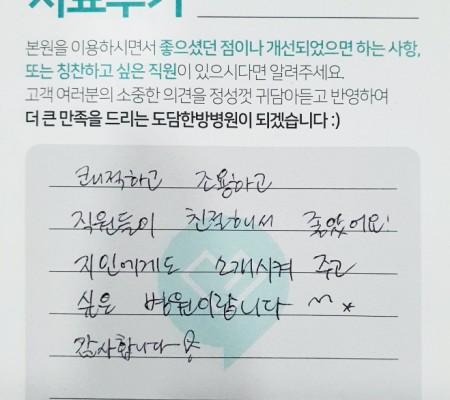 치료후기
본원을 이용하시면서 좋으셨던 점이나 개선되었으면 하는 사항,
또는 칭찬하고 싶은 직원이 있으시다면 알려주세요.
고객 여러분의 소중한 의견을 정성껏 귀담아듣고 반영하여
더 큰 만족을 드리는 도담한방병원이 되겠습니다 :)
쾌적하고 조용하고
직원들이 친절해서 좋았어요!
지인에게도 소개시켜 주고
싶은 병원이랍니다 ^^*
감사합니다